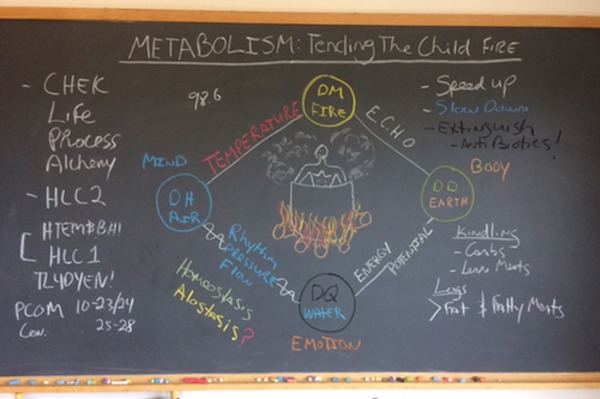 METABOLISM: Tending The Child FIRE
- CHEK
Life
Process
Alchemy
- HLC2
HTEM&BH!
HLC1
TL4DYEN!
PCOM 10-23/24
Con. 25-28
98.6
MIND
TEMPERATURE
DM
FIRE
E.C.H.O
DH
AIR
DD
EARTH
BODY
Rhythm
Pressure
Flow
ENERGY
POTENTIAL
DQ
WATER
EMOTION
Homeostasis
Alostasis?
- Speed up
- Slow Down
- Extinguish
- AntiBiotics!
Kindling
- Carbs
- Lean Meats
Logs
> Fat & Fatty Meats